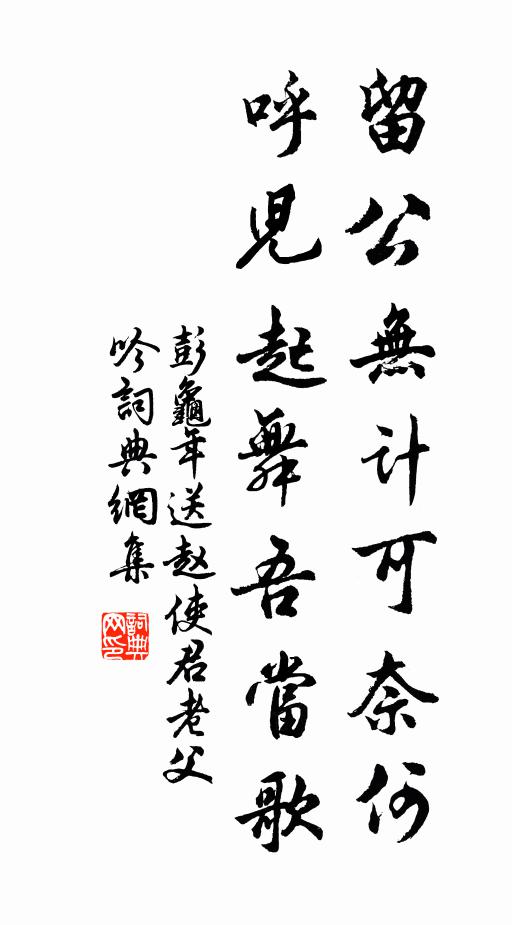 留公無计可奈何
呼兒起舞吾當歌
彭龜年送赵使君老父
吟詞典網集
詞典网印